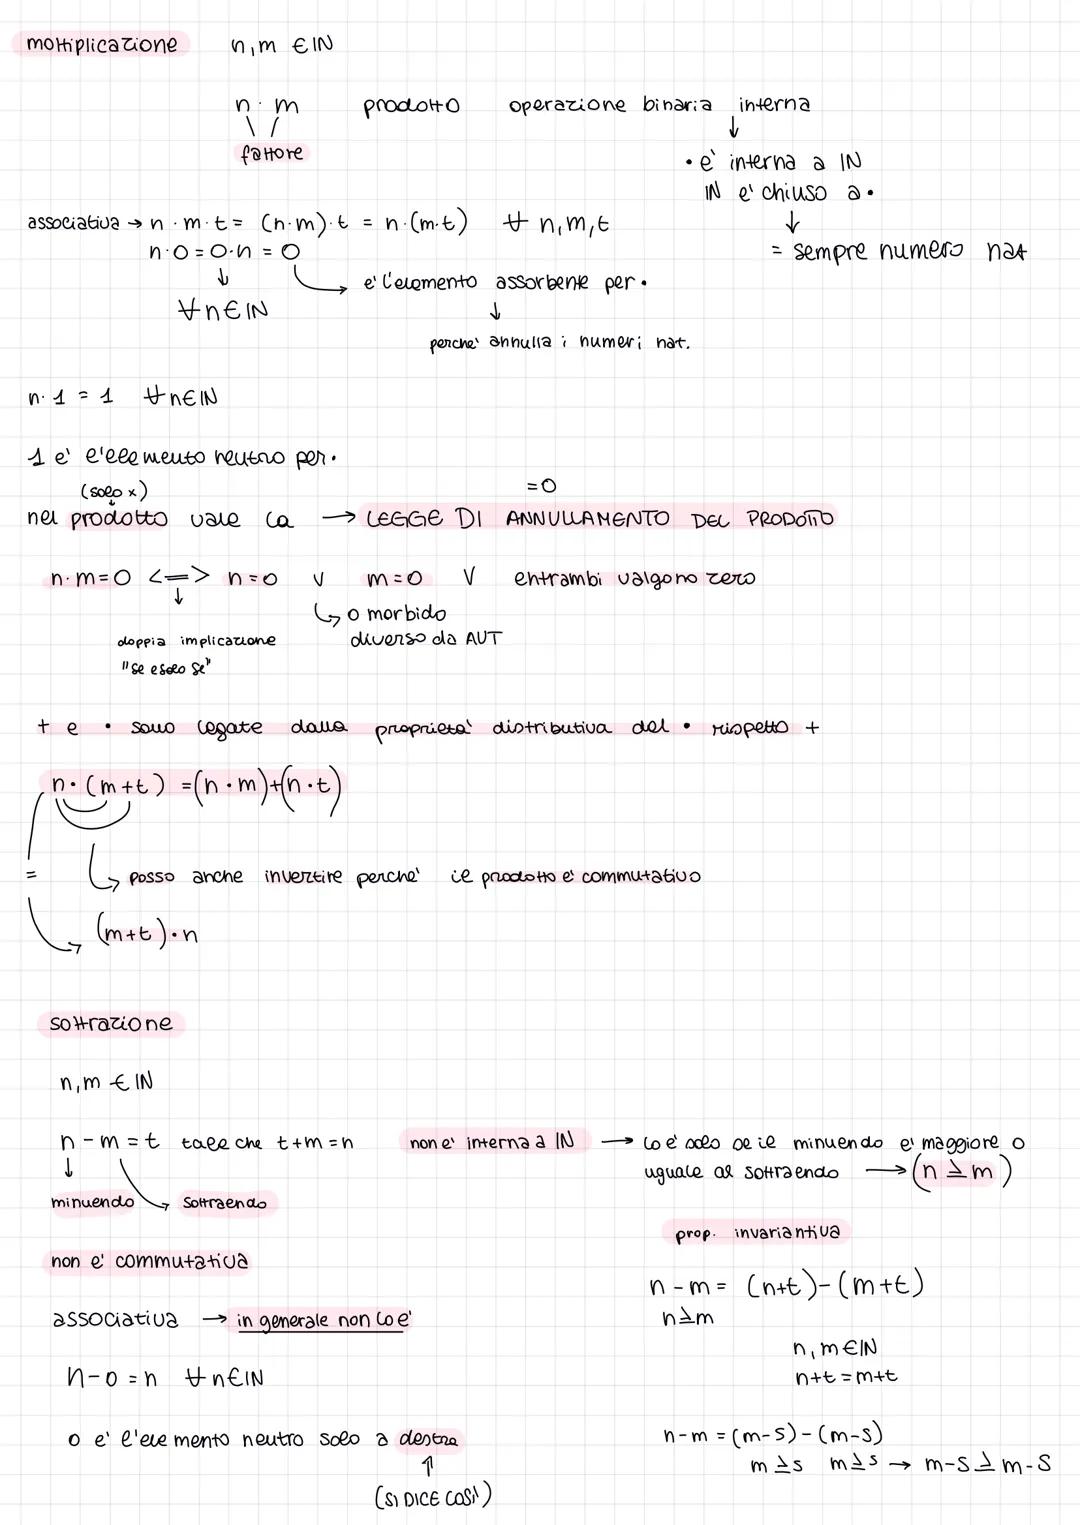 moltiplicazione n,m ∈ IN
n · m prodotto operazione binaria interna
↓
fattore
• e' interna a IN
IN e' chiuso a •
↓
= sempre numero nat
associativa → n · m · t = (n·m)·t = n·(m·t) ∀ n,m,t
n·0 = 0·n = 0
↓ → e' l'elemento assorbente per •
∀n∈IN ↓
perche' annulla i numeri nat.
n·1 = 1 ∀n∈IN
1 e' l'elemento neutro per •
(solo x) =0
nel prodotto vale la → LEGGE DI ANNULLAMENTO DEL PRODOTTO
n·m=0 <=> n=0 v m=0 V entrambi valgono zero
↓ ↳ o morbido
doppia implicazione diverso da AUT
"se e solo se"
+ e • sono legate dalla proprieta' distributiva del • rispetto +
n·(m+t) =(n·m)+(n·t)
= ↳ posso anche invertire perche' il prodotto e' commutativo
(m+t)·n
sottrazione
n,m ∈ IN
n - m = t tale che t+m=n non e' interna a IN → lo e' solo se il minuendo e' maggiore o
uguale al sottraendo → (n ≥ m)
minuendo sottraendo
prop. invariantiva
non e' commutativa
n - m = (n+t)-(m+t)
associativa → in generale non lo e'
n≥m
n,m∈IN
n-0 = n ∀n∈IN
n+t = m+t
0 e' l'elemento neutro solo a destra
n-m = (m-s)-(m-s)
↑
m≥s m≥s → m-s≥m-s
(SI DICE COSI')